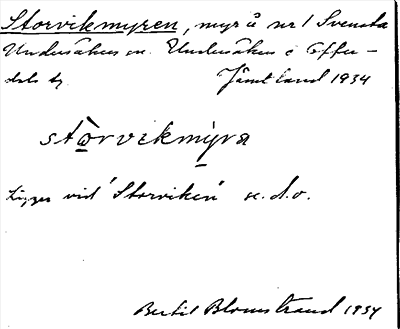 Storvikmyren, myr å nr 1 Svenska
Undersåker sn. Undersåkers o Offer-
dals tg Jämtland 1934
stòrvikmýra
Ligger vid Storviken se. d. o.
Bertil Blomstrand 1934